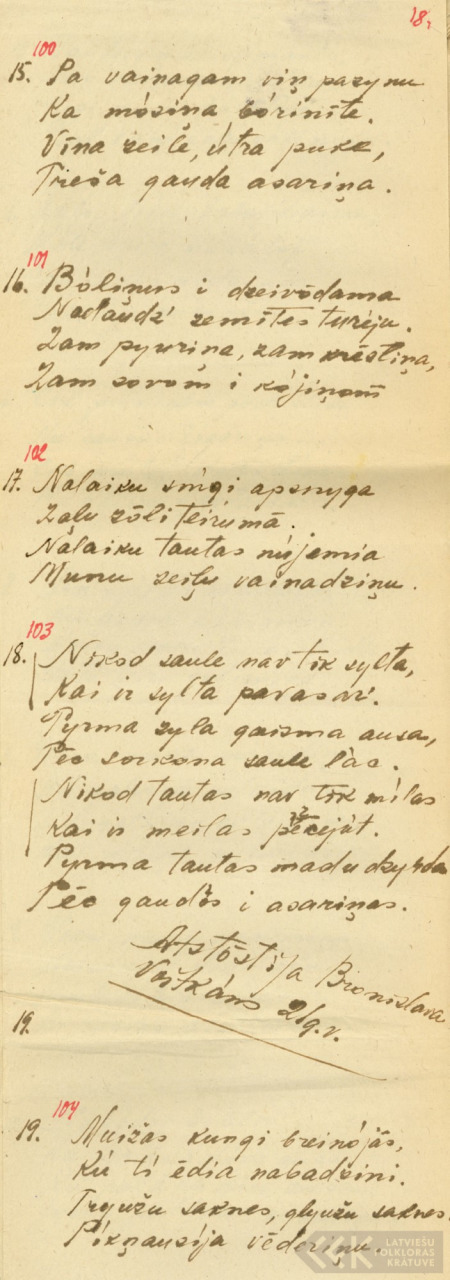 18.
100
15. Pa vainagam viņ pazynu
Ka mósiņa bórinīte.
Vīna zeile, útra puke,
Treša gauda asariņa.
101
16. Bóliņus i dzeivódama
Nadaudź zemītes turéju.
Zam pyuriņa, zam krēsliņa,
Zam sovom i kójiņom
102
17. Nalaiku snígi apsnyga
Zaļu zóli teirumā.
Nalaiku tautas nújemia
Munu zeiļu vainadziņu.
103
18. Nikod saule nav tik sylta,
Kai ir sylta pavasaŕ.
Pyrma zyla gaisma ausa,
Pēc sorkona saule lāc.
Nikod tautas nav tik mīlas
Kai ir meilas pēcejút.
Pyrma tautas madu dzyrda
Pēc gaudōs i asariņas.
Atstōstīja Bronislava
Voitkáns 2/9. v.
19.
104
19. Muižas kungi breinójās,
Kú tí ēdia nabadzini.
Tryužu saknes, glyužu saknes
Píkņauzija vēderiņu.
LATVIEŠU
FOLKLORAS
KRĀTUVE